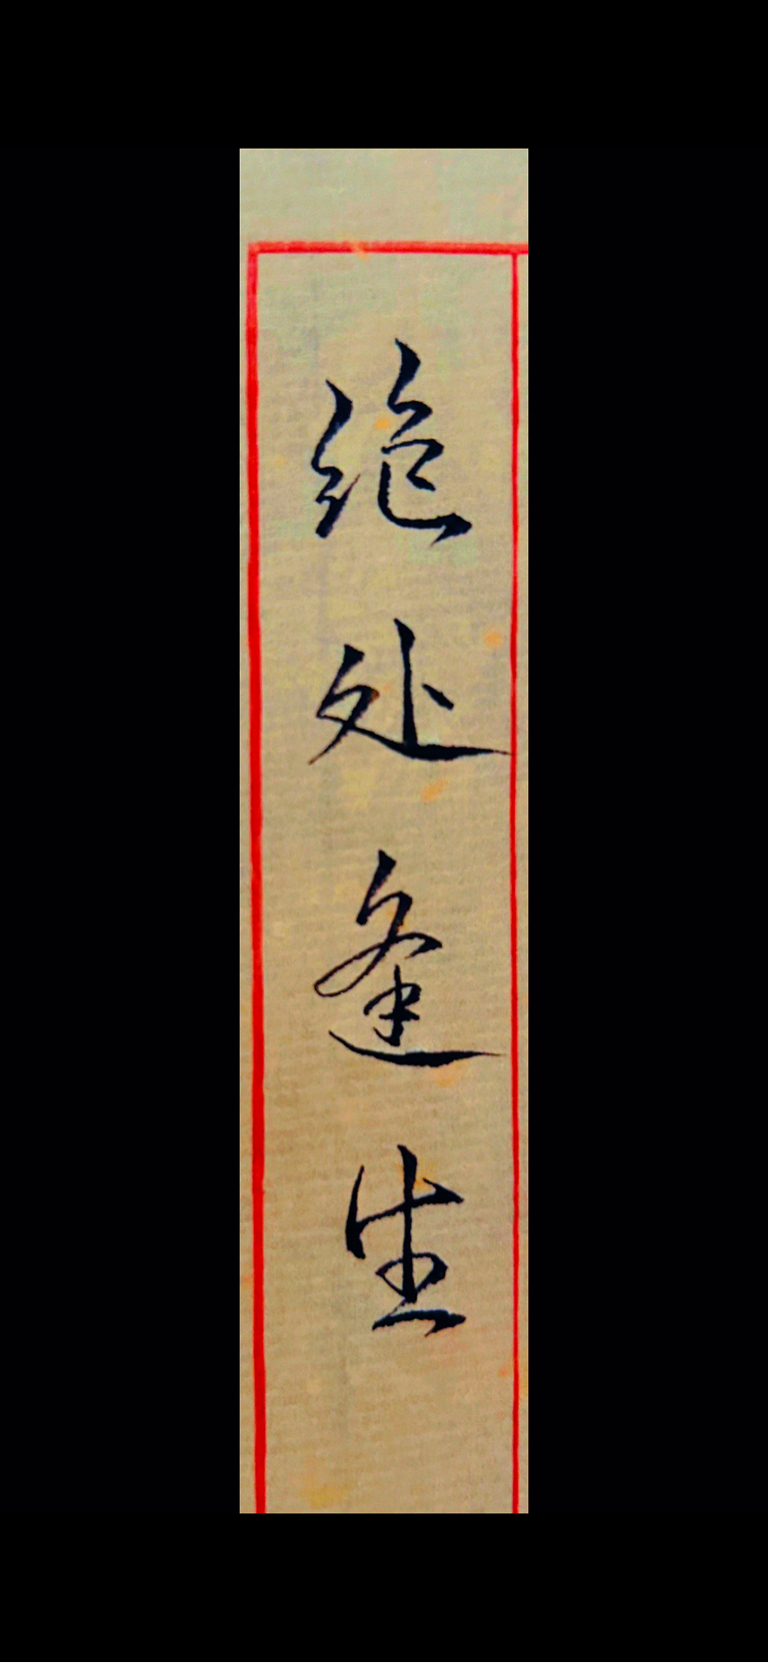 绝处逢生